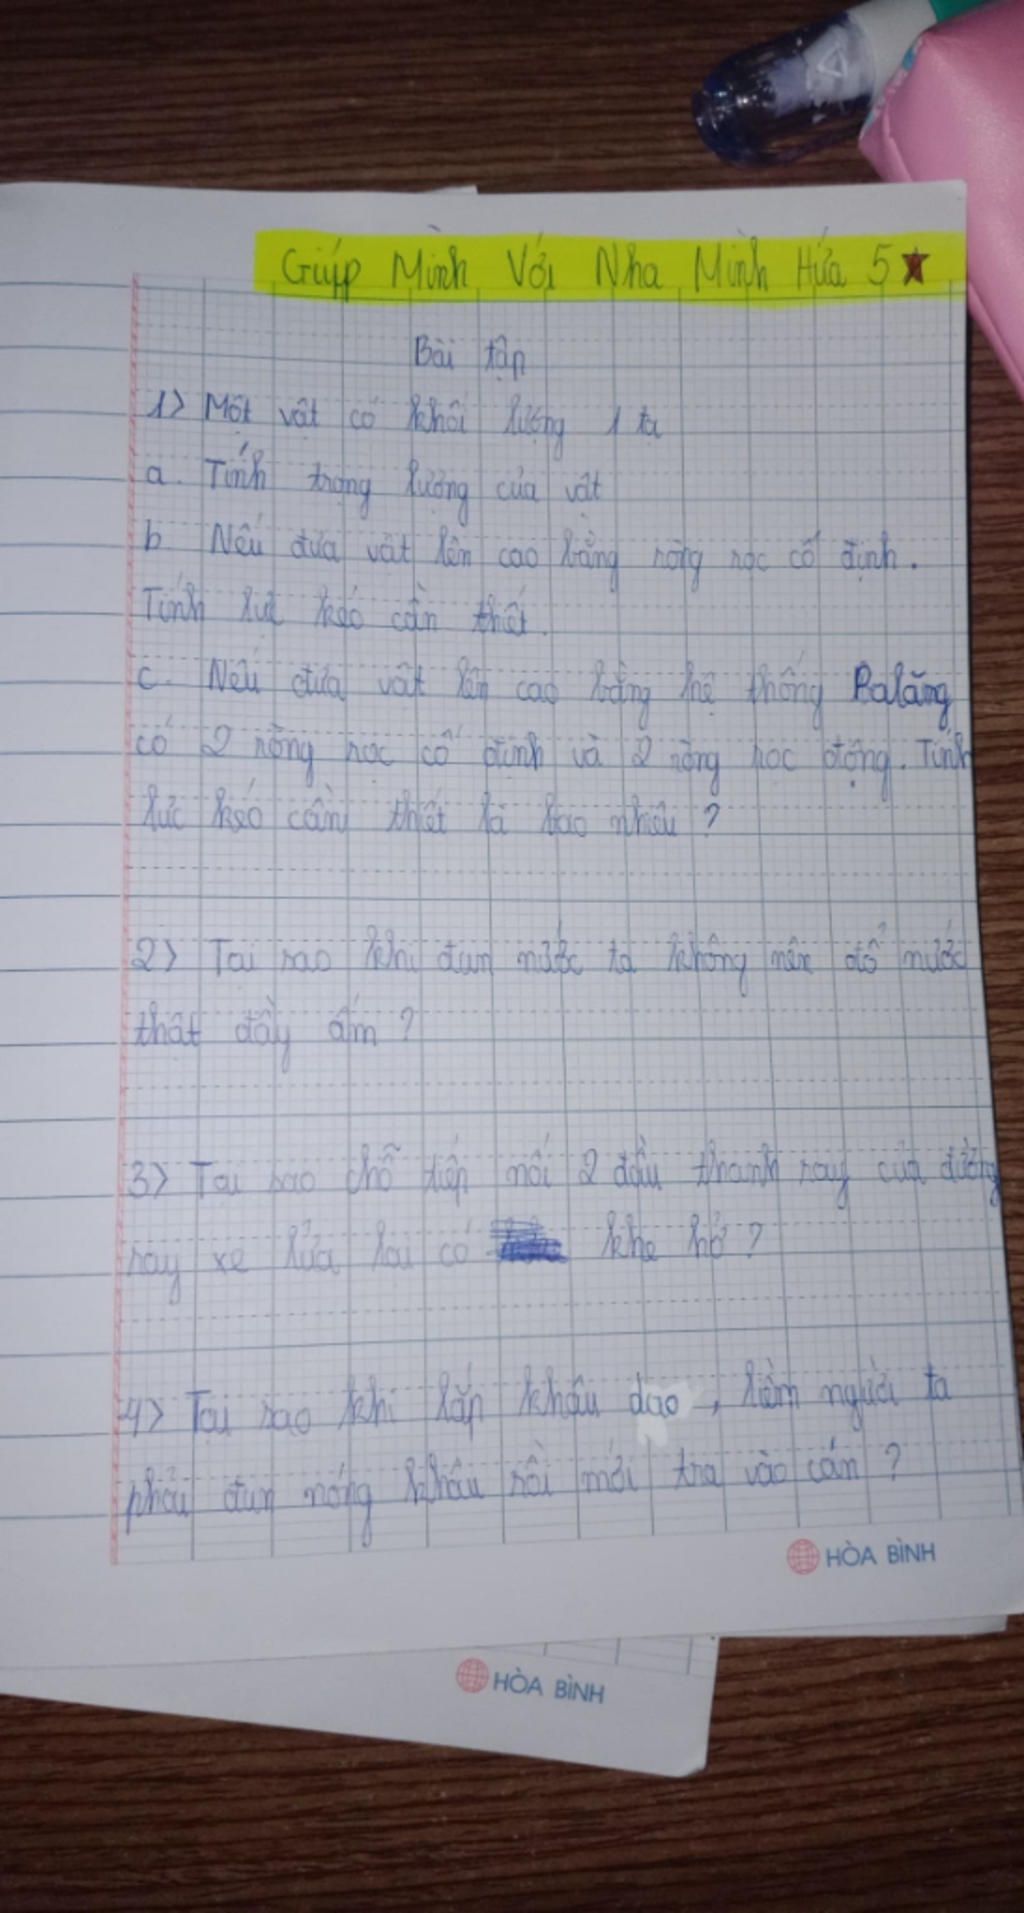 Giúp Mình Với Nha Mình Hứa 5★
Bài tập
1> Một vật có khối lượng 1 tạ
a. Tính trọng lượng của vật
b. Nếu đưa vật lên cao bằng ròng rọc cố định.
Tính lực kéo cần thiết.
c. Nếu đưa vật lên cao bằng hệ thống Palăng
có 2 ròng rọc cố định và 2 ròng rọc động. Tính
lực kéo cần thiết là bao nhiêu ?
2> Tại sao khi đun nước ta không nên đổ nước
thật đầy ấm ?
3> Tại sao chỗ tiếp nối 2 đầu thanh ray của đường
ray xe lửa lại có khe hở ?
4> Tại sao khi lắp khâu dao, liềm người ta
phải đun nóng khâu rồi mới tra vào cán ?
HÒA BÌNH
HÒA BÌNH